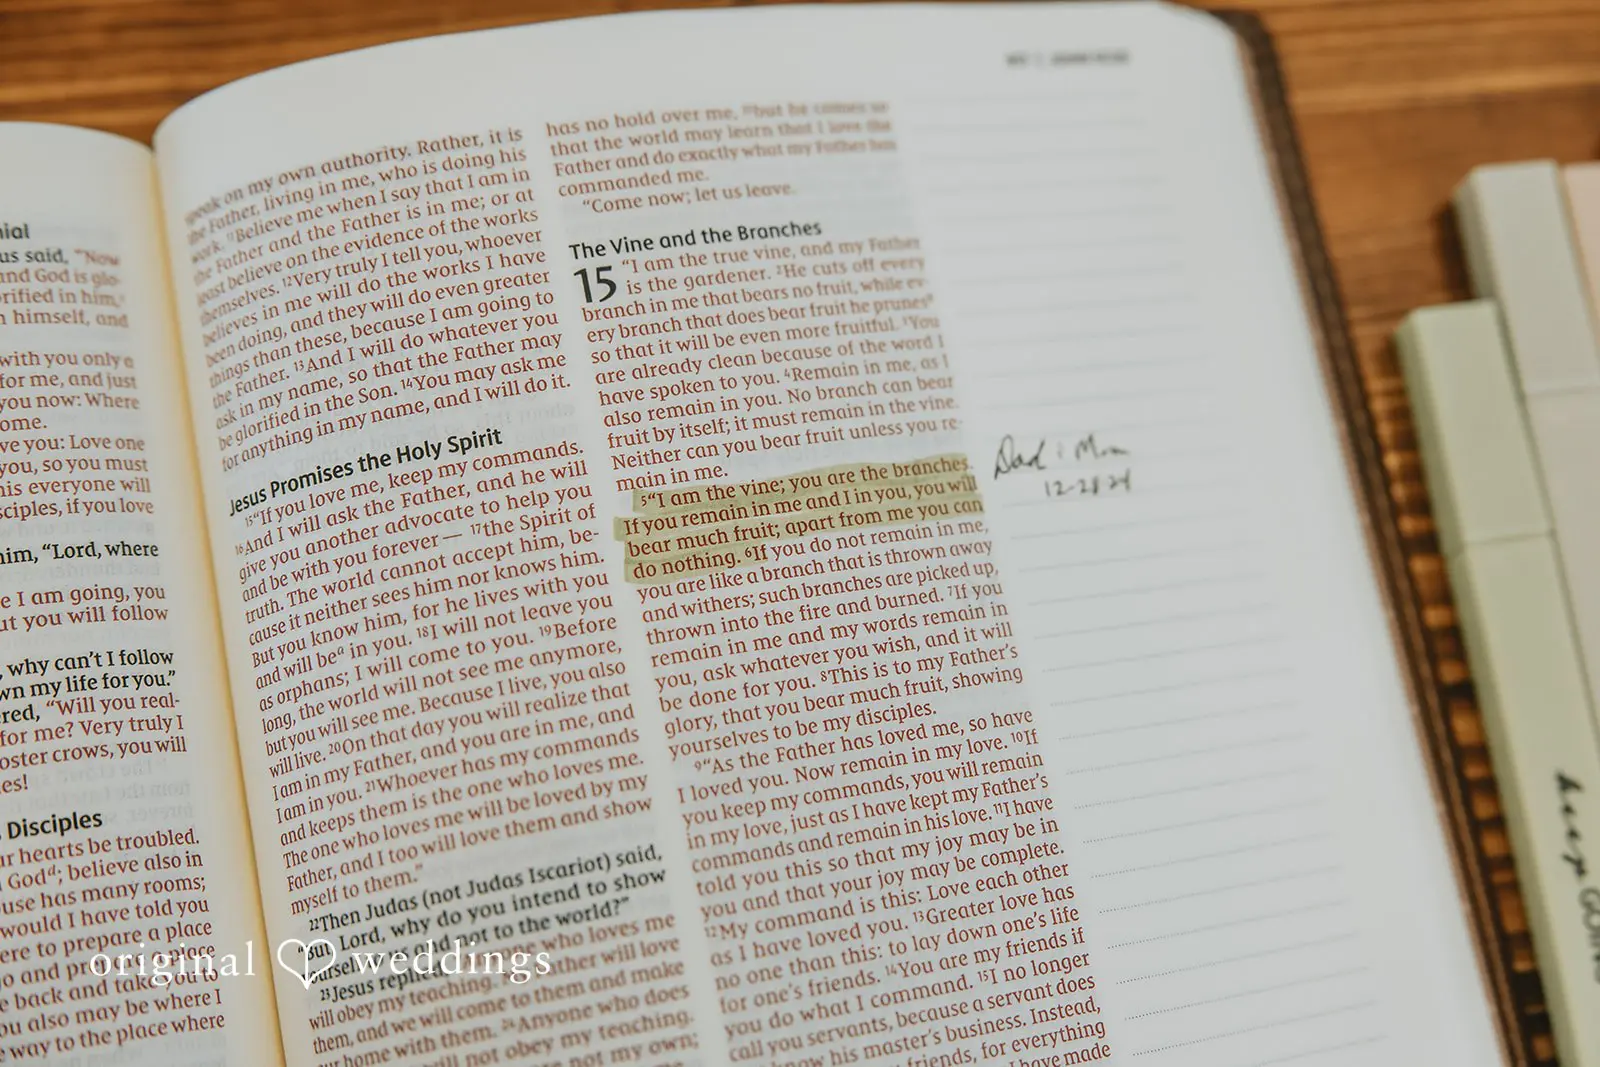 nial
us said, "Now
and God is glo-
rified in him,
n himself, and
with you only a
for me, and just
you now: Where
ome.
ve you: Love one
you, so you must
his everyone will
sciples, if you love
him, "Lord, where
e I am going, you
ut you will follow
, why can't I follow
wn my life for you."
red, "Will you real-
for me? Very truly I
oster crows, you will
es!
Disciples
ur hearts be troubled.
God^d; believe also in
ouse has many rooms;
would I have told you
ere to prepare a place
go and prepare a place
e back and take you to
ou also may be where I
e way to the place where
speak on my own authority. Rather, it is
the Father, living in me, who is doing his
work. 11Believe me when I say that I am in
the Father and the Father is in me; or at
least believe on the evidence of the works
themselves. 12Very truly I tell you, whoever
believes in me will do the works I have
been doing, and they will do even greater
things than these, because I am going to
the Father. 13And I will do whatever you
ask in my name, so that the Father may
be glorified in the Son. 14You may ask me
for anything in my name, and I will do it.
Jesus Promises the Holy Spirit
15"If you love me, keep my commands.
16And I will ask the Father, and he will
give you another advocate to help you
and be with you forever— 17the Spirit of
truth. The world cannot accept him, be-
cause it neither sees him nor knows him.
But you know him, for he lives with you
and will be^a in you. 18I will not leave you
as orphans; I will come to you. 19Before
long, the world will not see me anymore,
but you will see me. Because I live, you also
will live. 20On that day you will realize that
I am in my Father, and you are in me, and
I am in you. 21Whoever has my commands
and keeps them is the one who loves me.
The one who loves me will be loved by my
Father, and I too will love them and show
myself to them."
22Then Judas (not Judas Iscariot) said,
"But, Lord, why do you intend to show
yourself to us and not to the world?"
23Jesus replied, "Anyone who loves me
will obey my teaching. My Father will love
them, and we will come to them and make
our home with them. 24Anyone who does
will not obey my teaching.
are not my own;
has no hold over me, 31but he comes so
that the world may learn that I love the
Father and do exactly what my Father has
commanded me.
"Come now; let us leave.
The Vine and the Branches
15 "I am the true vine, and my Father
is the gardener. 2He cuts off every
branch in me that bears no fruit, while ev-
ery branch that does bear fruit he prunes
so that it will be even more fruitful. 3You
are already clean because of the word I
have spoken to you. 4Remain in me, as I
also remain in you. No branch can bear
fruit by itself; it must remain in the vine.
Neither can you bear fruit unless you re-
main in me.
5"I am the vine; you are the branches.
If you remain in me and I in you, you will
bear much fruit; apart from me you can
do nothing. 6If you do not remain in me,
you are like a branch that is thrown away
and withers; such branches are picked up,
thrown into the fire and burned. 7If you
remain in me and my words remain in
you, ask whatever you wish, and it will
be done for you. 8This is to my Father's
glory, that you bear much fruit, showing
yourselves to be my disciples.
9"As the Father has loved me, so have
I loved you. Now remain in my love. 10If
you keep my commands, you will remain
in my love, just as I have kept my Father's
commands and remain in his love. 11I have
told you this so that my joy may be in
you and that your joy may be complete.
12My command is this: Love each other
as I have loved you. 13Greater love has
no one than this: to lay down one's life
for one's friends. 14You are my friends if
you do what I command. 15I no longer
call you servants, because a servant does
know his master's business. Instead,
friends, for everything
I have made
Dad & Mom
12-28-24
keep GOING
original weddings